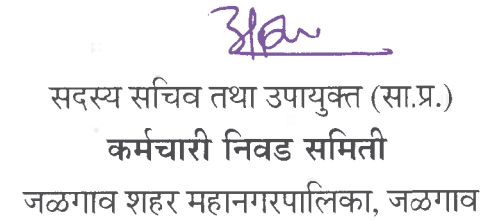 सदस्य सचिव तथा उपायुक्त (सा.प्र.)
कर्मचारी निवड समिती
जळगाव शहर महानगरपालिका, जळगाव